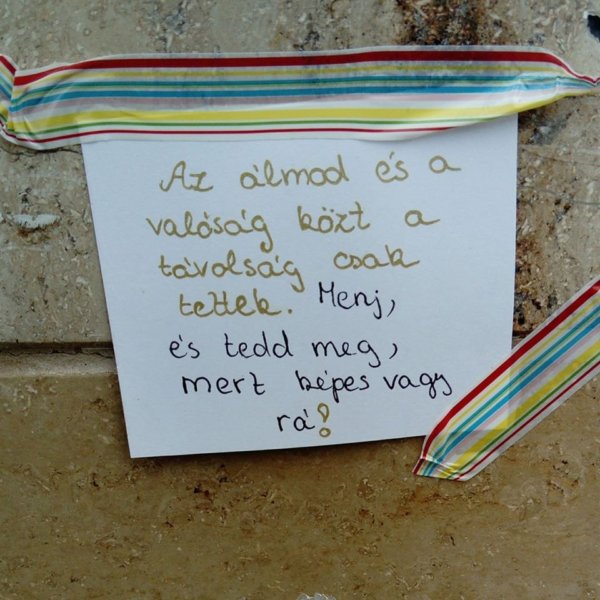 Az álmod és a
valóság közt a
távolság csak
tettek. Menj,
és tedd meg,
mert képes vagy
rá!